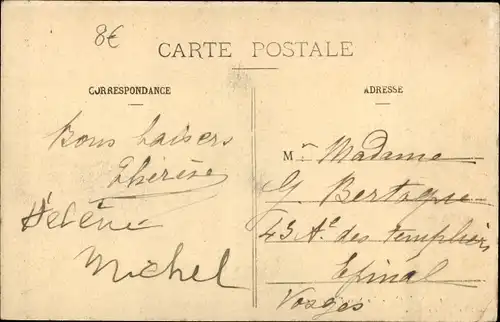 8€
CARTE POSTALE
CORRESPONDANCE
ADRESSE
Bons baisers
Thérèse
Hélène
Michel
M Madame
G Bertogne
45 Ae des Templiers
Epinal
Vosges